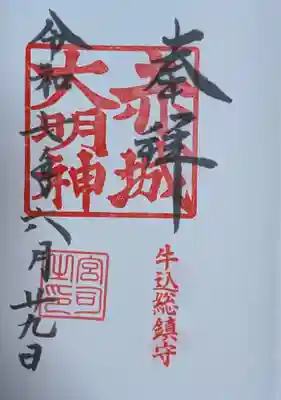 奉拝
赤城
大明神
牛込総鎮守
宮司
之印
令和六年六月廿九日